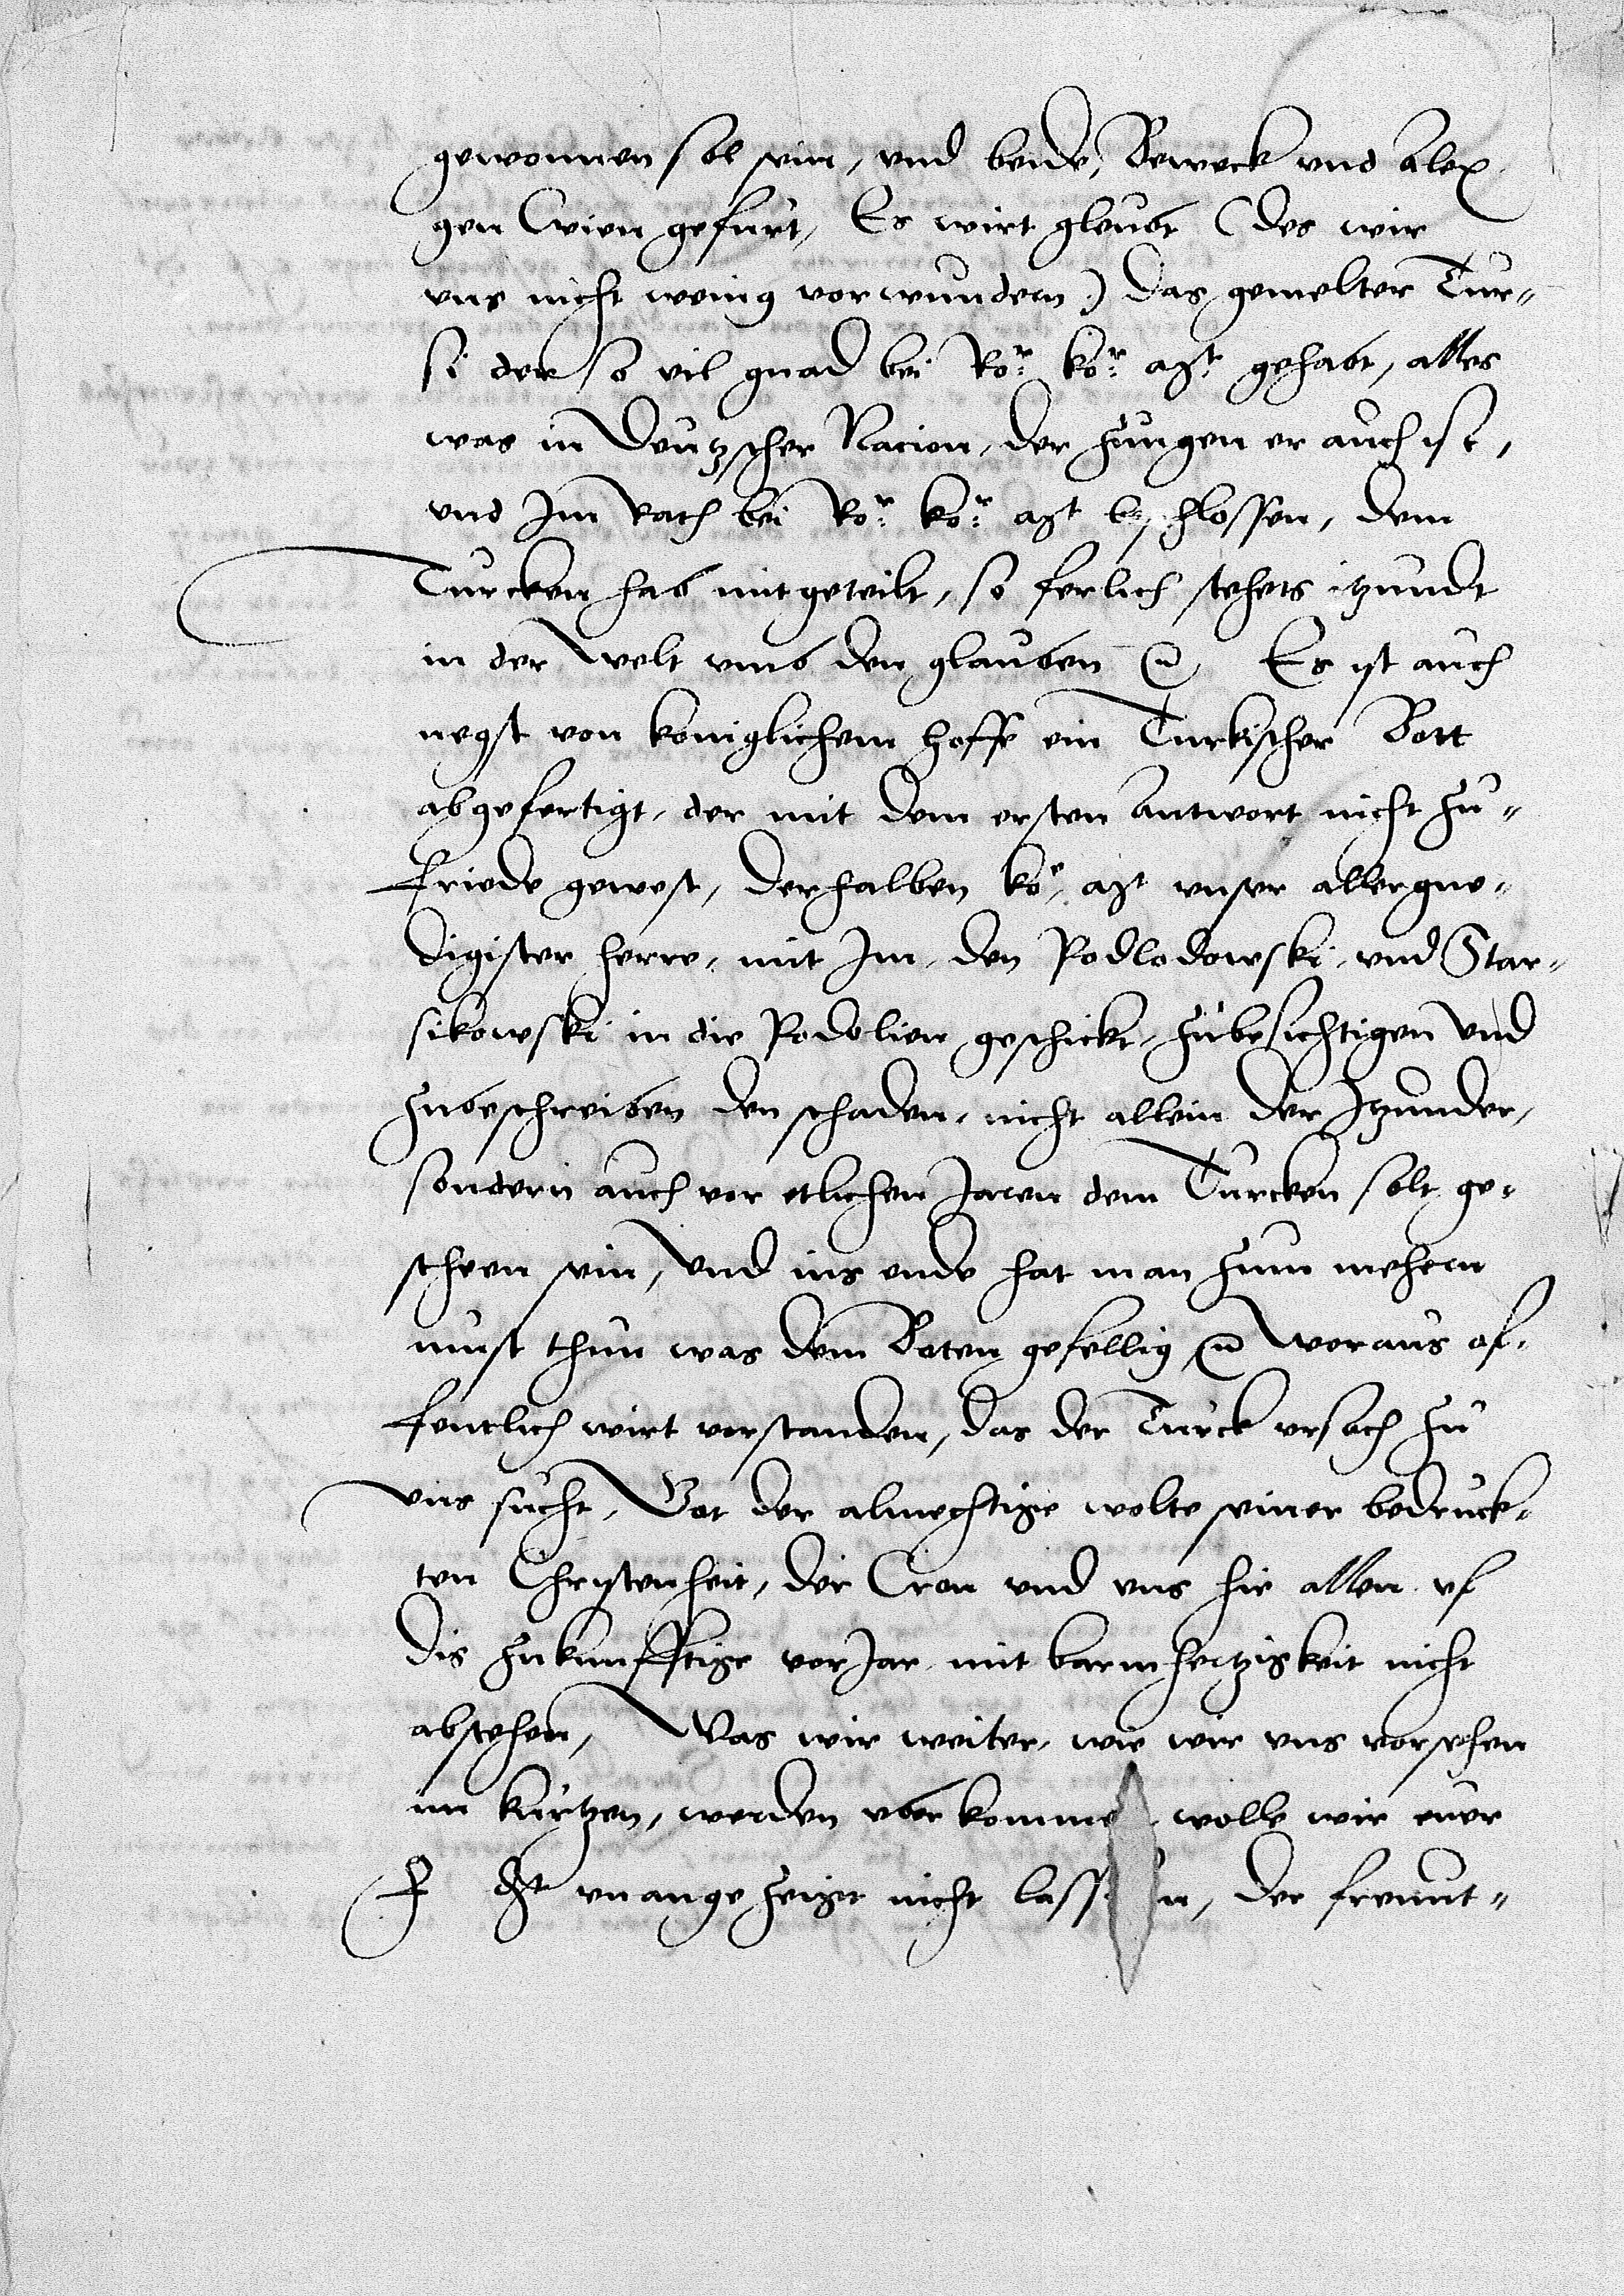 gewonnen sol sein, vnd beide, Bereck vnd Alex
gen Wien gefurt, Es wirt gleubt (des wir
vns nicht wenig vorwundern) das gemelter Tur¬
si der so vil gnad bei Ro:r ko:r Mt gehabt, alles
was in Deutzscher Nacion, der zungen er auch ist,
vnd Im Rath bei Ro:r ko:r Mt beschlossen, dem
Turcken hab mitgeteilt, so ferlich stehets itzundt
in der welt vmb den glauben Es ist auch
negst von koniglichem hoffe ein Turkischer Bott
abgefertigt, der mit dem ersten Antwort nicht zu¬
friede gewest, derhalben ko:r Mt vnser allergne¬
digister herre, mit Im, den Podlodowski, vnd Star¬
sikowski in die Podolien geschickt, zubesichtigen vnd
zubeschreiben den schaden, nicht allein der Itzunder,
sondern auch vor etlichen Jaren dem Turcken solt ge¬
scheen sein, Vnd ins ende hat man zum mehern
must thun was dem Boten gefellig, Woraus of¬
fentlich wirt vorstanden, das der Turck vrsach zu
vns sucht, Got der almechtige wolte seiner bedruck¬
ten Christenheit, der Cron vnd vns hie allen vf
dis zukunfftige vorJar mit barmhertzigkeit nicht
abstehen, Was wir weiter, wie wir vns vorsehen
im kurtzen, werden vberkomme wolle wir euer
F Gt vnangezeigt nicht lassen, der freunt¬